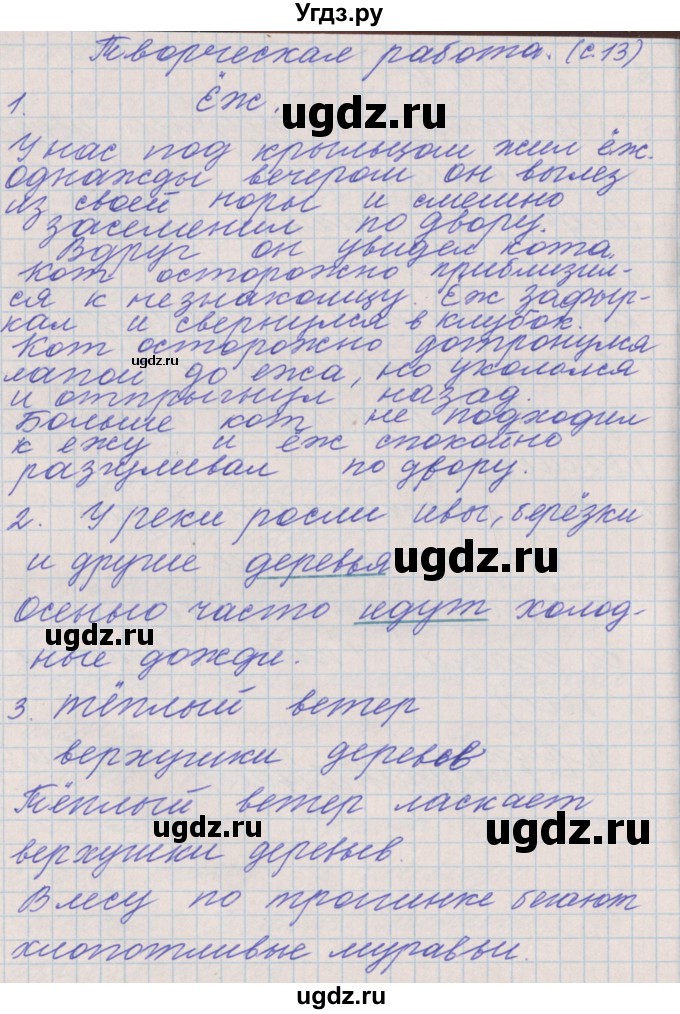 Угдз.ру
Творческая работа. (с.13)
1. Ёж.
ugdz.ru
У нас под крыльцом жил ёж.
Однажды вечером он вылез
из своей норы и смешно
засеменил по двору.
Вдруг он увидел кота.
Кот осторожно приблизил-
ся к незнакомцу. Ёж зафыр-
кал и свернулся в клубок.
Кот осторожно дотронулся
ugdz.ru
лапой до ежа, но укололся
и отпрыгнул назад.
Больше кот не подходил
к ежу и ёж спокойно
разгуливал по двору.
2. У реки росли ивы, берёзки
и другие деревья
ugdz.ru
Осенью часто идут холод-
ugdz.ru
ные дожди.
3. тёплый ветер
верхушки деревьев
Тёплый ветер ласкает
ugdz.ru
ugdz.ru
верхушки деревьев.
В лесу по тропинке бегают
хлопотливые муравьи.
ugdz.ru